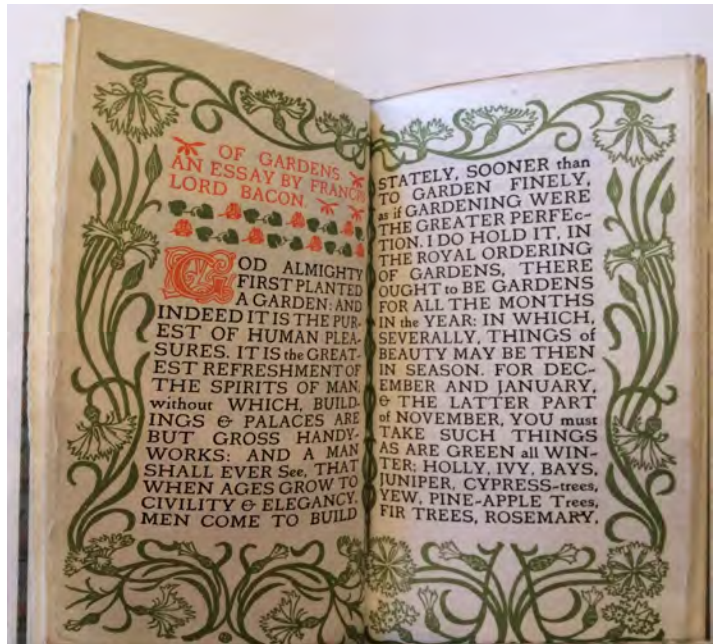 OF GARDENS
AN ESSAY BY FRANCIS
LORD BACON.
GOD ALMIGHTY
FIRST PLANTED
A GARDEN: AND
INDEED IT IS THE PUR-
EST OF HUMAN PLEA-
SURES. IT IS the GREAT-
EST REFRESHMENT OF
THE SPIRITS OF MAN;
without WHICH, BUILD-
INGS & PALACES ARE
BUT GROSS HANDY-
WORKS: AND A MAN
SHALL EVER See, THAT
WHEN AGES GROW TO
CIVILITY & ELEGANCY,
MEN COME TO BUILD
STATELY, SOONER than
TO GARDEN FINELY,
as if GARDENING WERE
THE GREATER PERFEc-
TION. I DO HOLD IT, IN
THE ROYAL ORDERING
OF GARDENS, THERE
OUGHT to BE GARDENS
FOR ALL THE MONTHS
IN the YEAR: IN WHICH,
SEVERALLY, THINGS of
BEAUTY MAY BE THEN
IN SEASON. FOR DEC-
EMBER AND JANUARY,
& THE LATTER PART
of NOVEMBER, YOU must
TAKE SUCH THINGS
AS ARE GREEN all WIN-
TER; HOLLY, IVY, BAYS,
JUNIPER, CYPRESS-trees,
YEW, PINE-APPLE Trees,
FIR TREES, ROSEMARY,